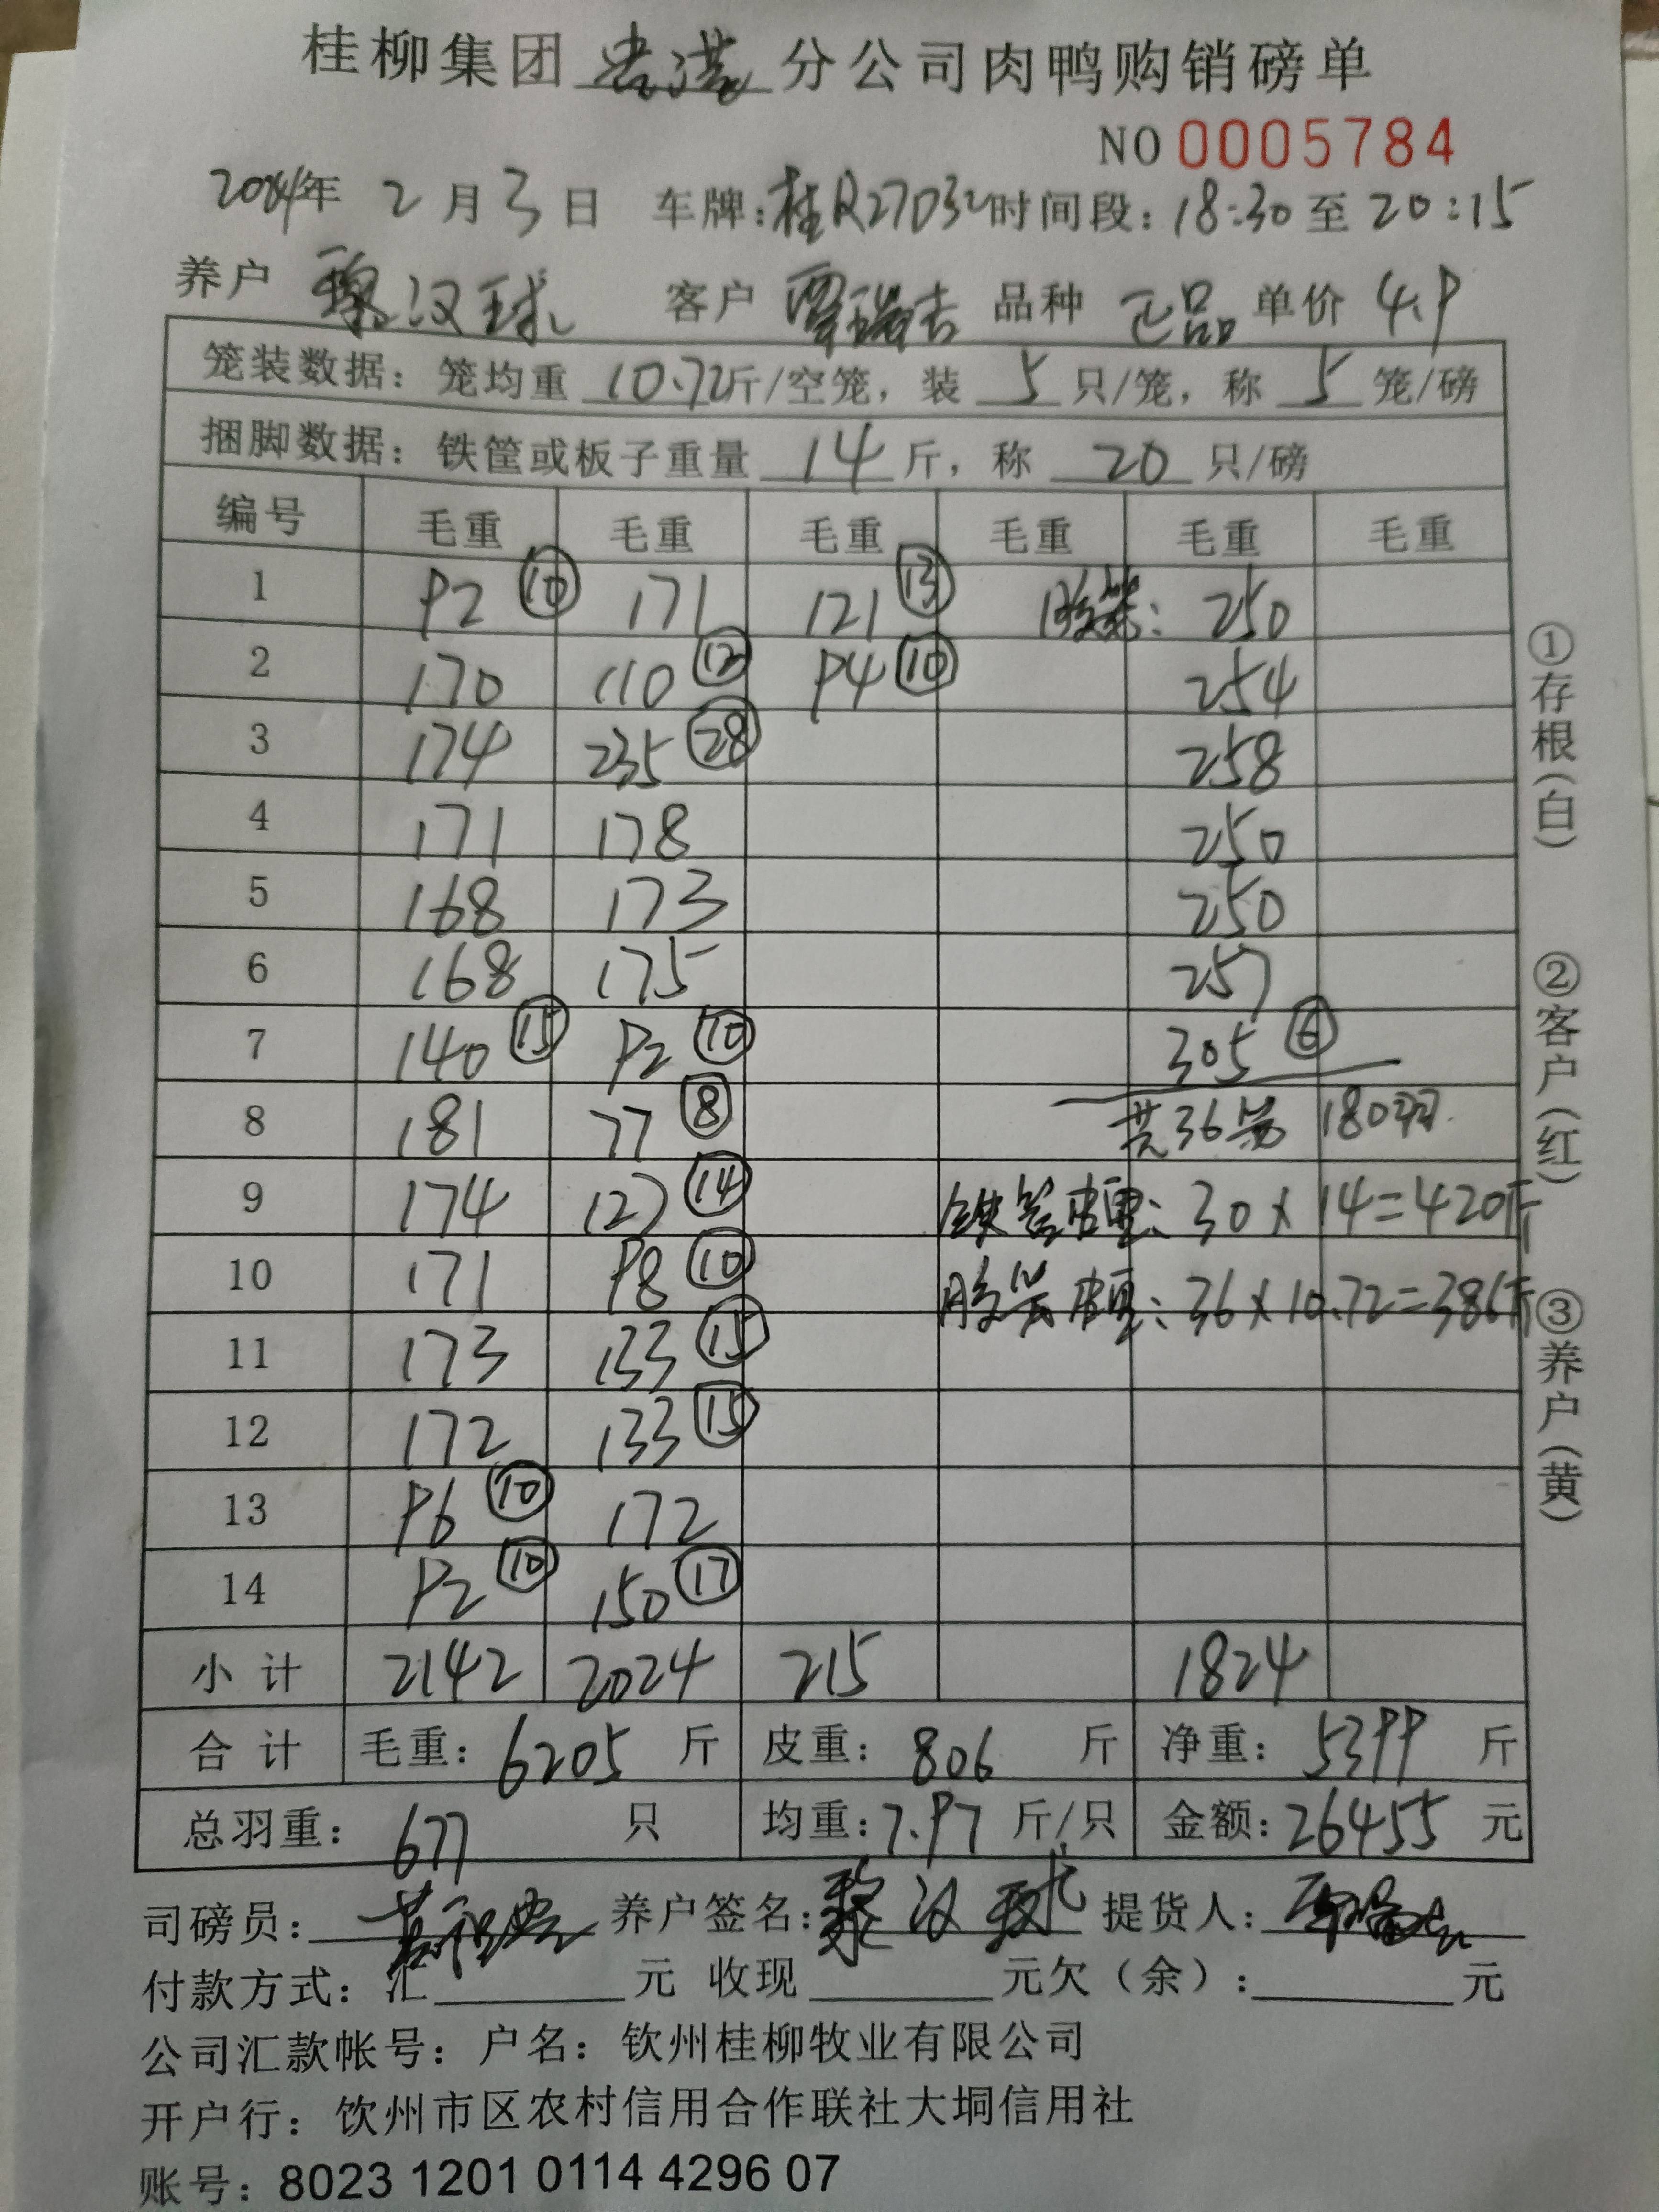 桂柳集团贵港分公司肉鸭购销磅单
NO 0005784
2024年 2月3日 车牌:桂R27D32 时间段: 18:30 至 20:15
养户 黎汉球 客户 覃瑞吉 品种 正品 单价 4.9
笼装数据: 笼均重 10.72 斤/空笼, 装 5 只/笼, 称 5 笼/磅
捆脚数据: 铁筐或板子重量 14 斤, 称 20 只/磅
编号 毛重 毛重 毛重 毛重 毛重 毛重
1 92 ⑩ 171 121 ⑬ 胶笼: 250
2 170 110 ⑫ 94 ⑩ 254
3 174 235 ㉘ 258
4 171 178 250
5 168 173 250
6 168 175 257
7 140 ⑮ 92 ⑩ 305 ⑥
8 181 77 ⑧ 共36笼 180羽
9 174 127 ⑭ 铁笼皮重: 30×14=420斤
10 171 98 ⑩ 胶笼皮重: 36×10.72=386斤
11 173 133 ⑮
12 172 133 ⑮
13 96 ⑩ 172
14 92 ⑩ 150 ⑰
小计 2142 2024 215 1824
合计 毛重: 6205 斤 皮重: 806 斤 净重: 5399 斤
总羽重: 677 只 均重: 7.97 斤/只 金额: 26455 元
司磅员: 养户签名: 黎汉球 提货人:
付款方式: 汇 元 收现 元欠(余): 元
公司汇款帐号: 户名: 钦州桂柳牧业有限公司
开户行: 钦州市区农村信用合作联社大垌信用社
账号: 8023 1201 0114 4296 07
①存根(白) ②客户(红) ③养户(黄)